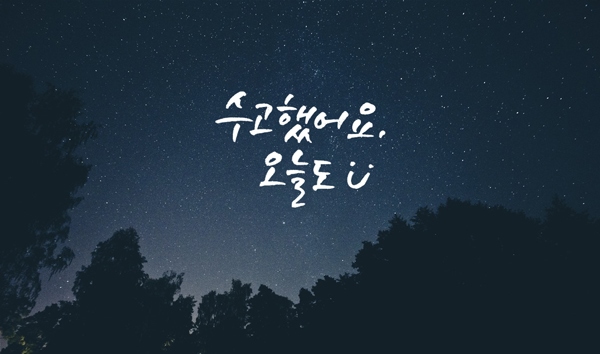 수고했어요.
오늘도 ü